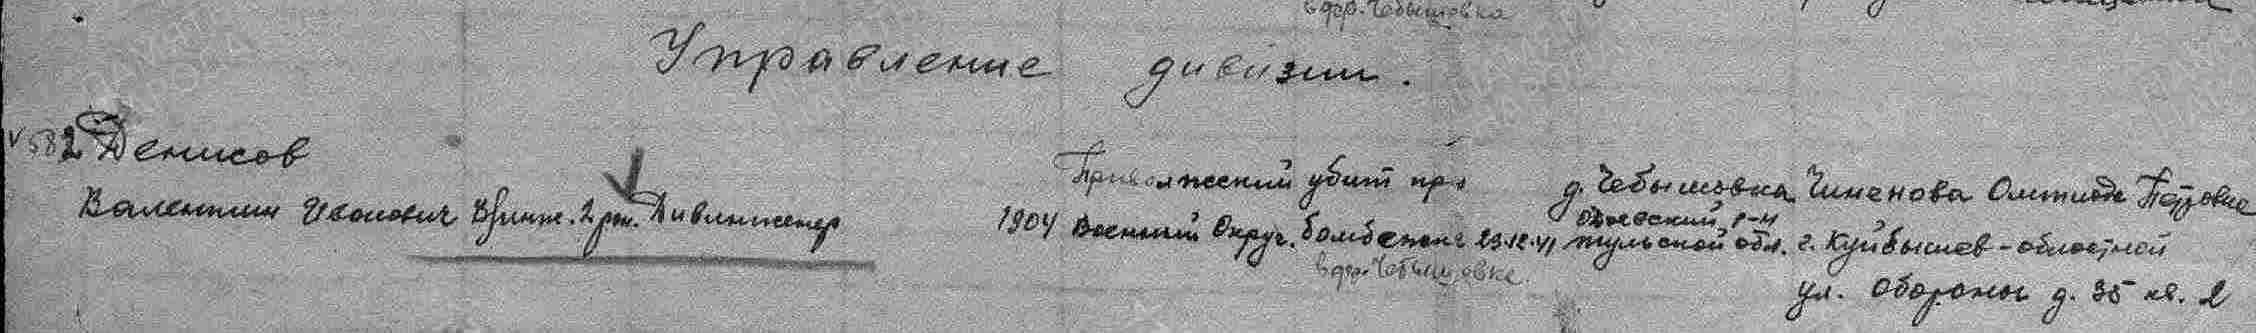 в дер. Чебышовка
Управление дивизии.
v 582 Денисов
Валентин Иванович В/инж. 2 рн. Дивинженер
1904
Приволжский
Военный Округ.
убит при
бомбежке 29.12.41
в дер. Чебышовке
д. Чебышовка
Одоевский р-н
тульской обл.
Чиненова Петровна
г. Куйбышев - областной
ул. Обороны д. 35 кв. 2